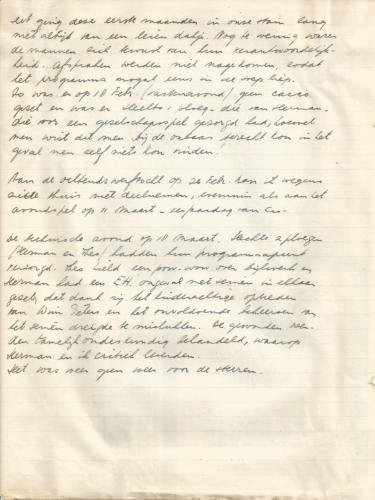 Het ging deze eerste maanden in onze stam lang
niet altijd van een leien dakje. Nog te weinig waren
de mannen zich bewust van hun verantwoordelijk-
heid. Afspraken werden niet nagekomen, zodat
het programma nogal eens in de soep liep.
Zo was er op 18 Feb. (vastenavond) geen cacao
gezet en was er slechts 1 ploeg - die van Herman -
die voor een gezelschapsspel gezorgd had, hoewel
men wist dat men bij de oubaas terecht kon in het
geval men zelf niets kon vinden!
Aan de ochtend op 22 Feb. kon ik wegens
ziekte thuis niet deelnemen, evenmin als aan het
avondspel op 11 Maart - verjaardag van
De technische avond op 18 Maart. Slechts 2 ploegen
(Herman en Theo) hadden hun programmapunt
verzorgd. Theo hield een pow-wow over bijlwerk en
Herman had een E.H. ongeval met in elkaar
gezet, dat dank zij het kinderachtige optreden
van Wim Peters en het onvoldoende beheersen van
het dreigde te mislukken. De gewonden wer-
den tamelijk ondeskundig behandeld, waarop
Herman en ik critiek leverden.
Het was weer geen weer voor de sterren.